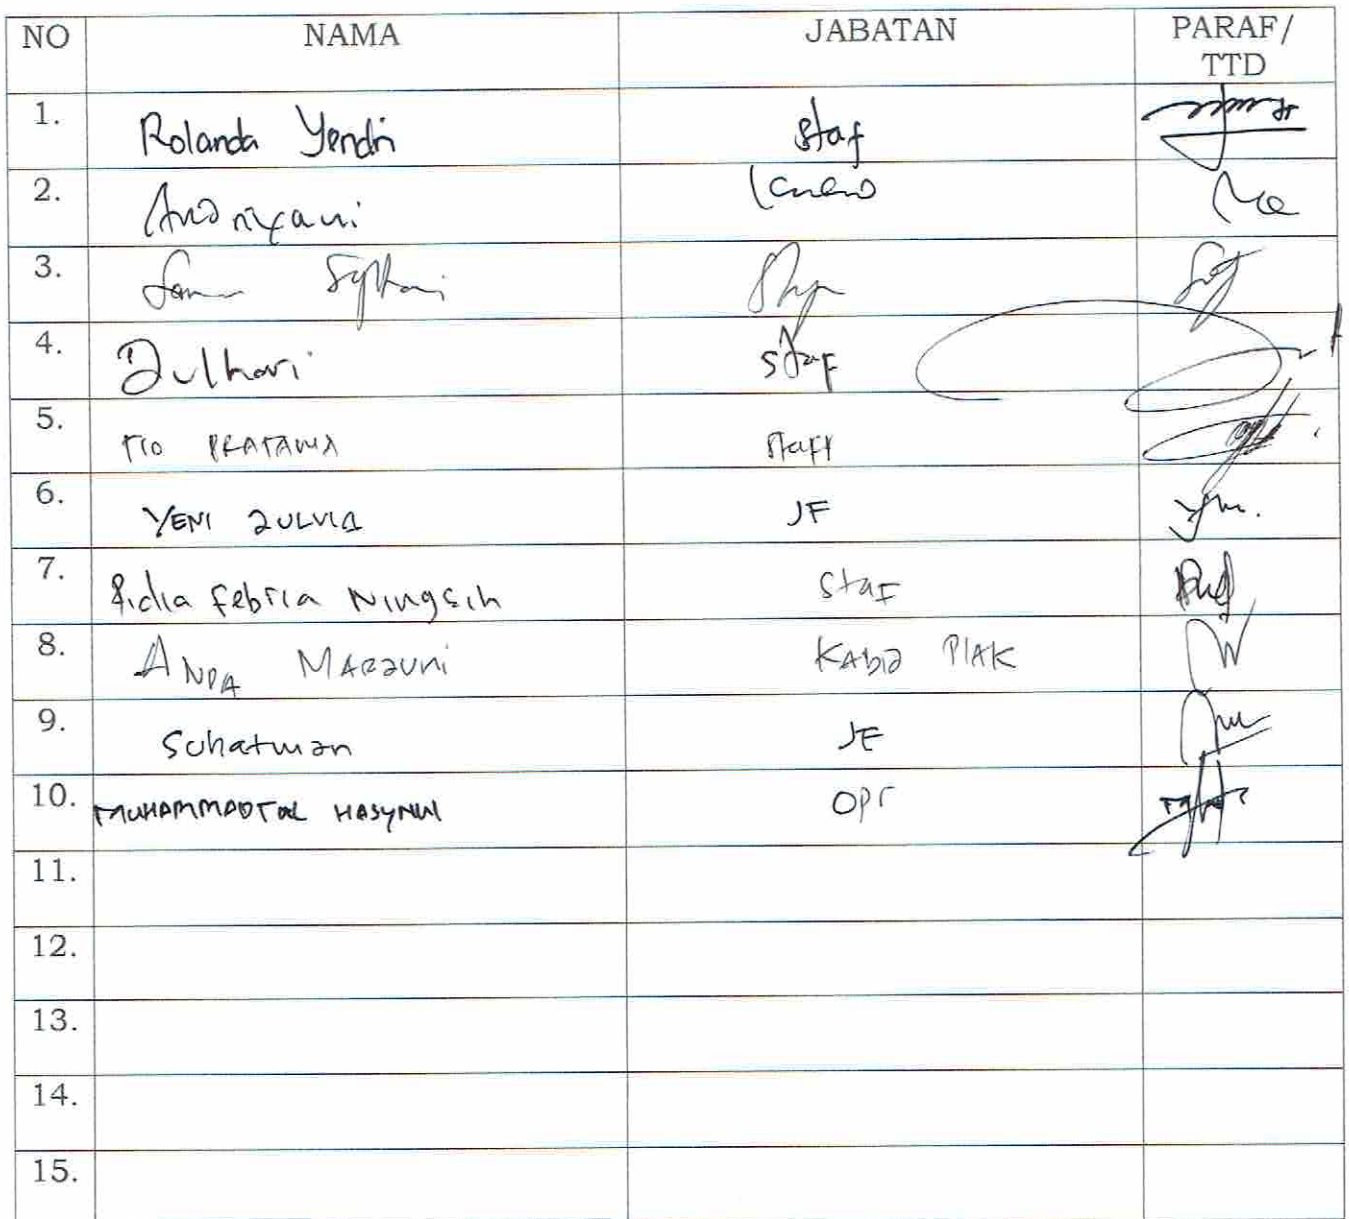 NO NAMA JABATAN PARAF/
TTD
1. Rolanda Yendri staf
2. Andriyani
3.
4. Zulhari staf
5. TIO PRATAMA staff
6. YENI ZULVIA JF
7. Ridia Febria Ningsih Staf
8. ANDA MARZUNI KABID PIAK
9. Suhatman JF
10. OPr
11.
12.
13.
14.
15.